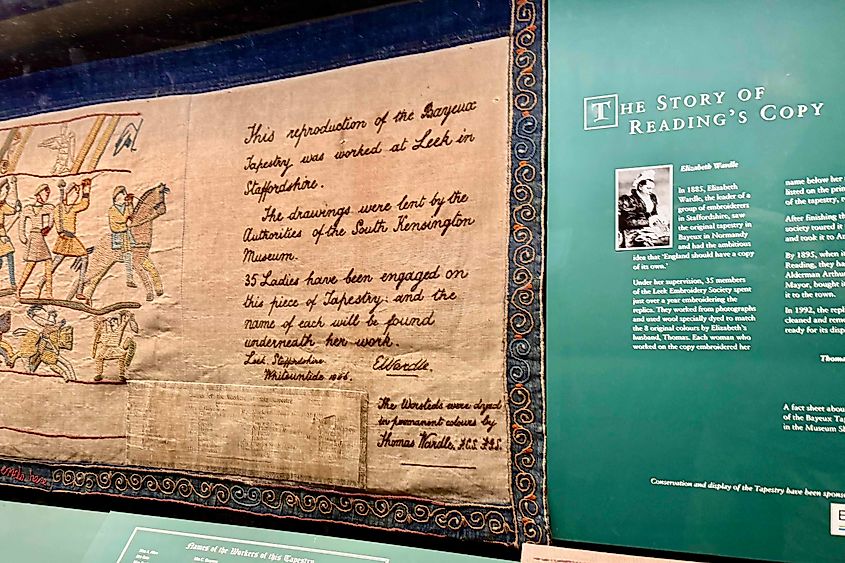 This reproduction of the Bayeux
Tapestry was worked at Leek in
Staffordshire.
The drawings were lent by the
Authorities of the South Kensington
Museum.
35 Ladies have been engaged on
this piece of Tapestry: and the
name of each will be found
underneath her work.
Leek, Staffordshire.
EWardle.
Whitsuntide 1886.
The Worsteds were dyed
in permanent colours by
Thomas Wardle, F.C.S. F.G.S.
here.
THE STORY OF
READING'S COPY
Elizabeth Wardle
In 1885, Elizabeth
Wardle, the leader of a
group of embroiderers
in Staffordshire, saw
the original tapestry in
Bayeux in Normandy
and had the ambitious
idea that 'England should have a copy
of its own.'
Under her supervision, 35 members
of the Leek Embroidery Society spent
just over a year embroidering the
replica. They worked from photographs
and used wool specially dyed to match
the 8 original colours by Elizabeth's
husband, Thomas. Each woman who
worked on the copy embroidered her
name below her
listed on the prin
of the tapestry, r
After finishing th
society toured it
and took it to Am
By 1895, when i
Reading, they ha
Alderman Arthur
Mayor, bought i
it to the town.
In 1992, the repl
cleaned and remo
ready for its disp
Thoma
A fact sheet abou
of the Bayeux Tap
in the Museum Sh
Conservation and display of the Tapestry have been sponso
E
Names of the Workers of this Tapestry